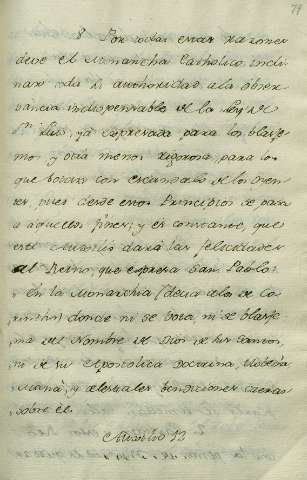 79
8 Por todas estas razones
deve el Monarcha Catholico incli
nar toda su authoridad a la obser
vancia indispensable de la Ley de
Sn Luis, ya expresada, para los blasfe
mos y otra menos rigorosa, para los
que botan con escandalo de los oyen
tes, pues desde estos Principios se pasa
a aquellos fines; y es constante, que
este dará las felicidades
al Reino, que expresa San Pablo:
en la Monarchia (decia a los de Co
rintho) donde ni se vota ni se blasfe
ma del Nombre de Dios de sus Santos,
ni de su Apostolica Doctrina, lloberá
Maná, y celestiales bendiciones caeran
sobre el.
12